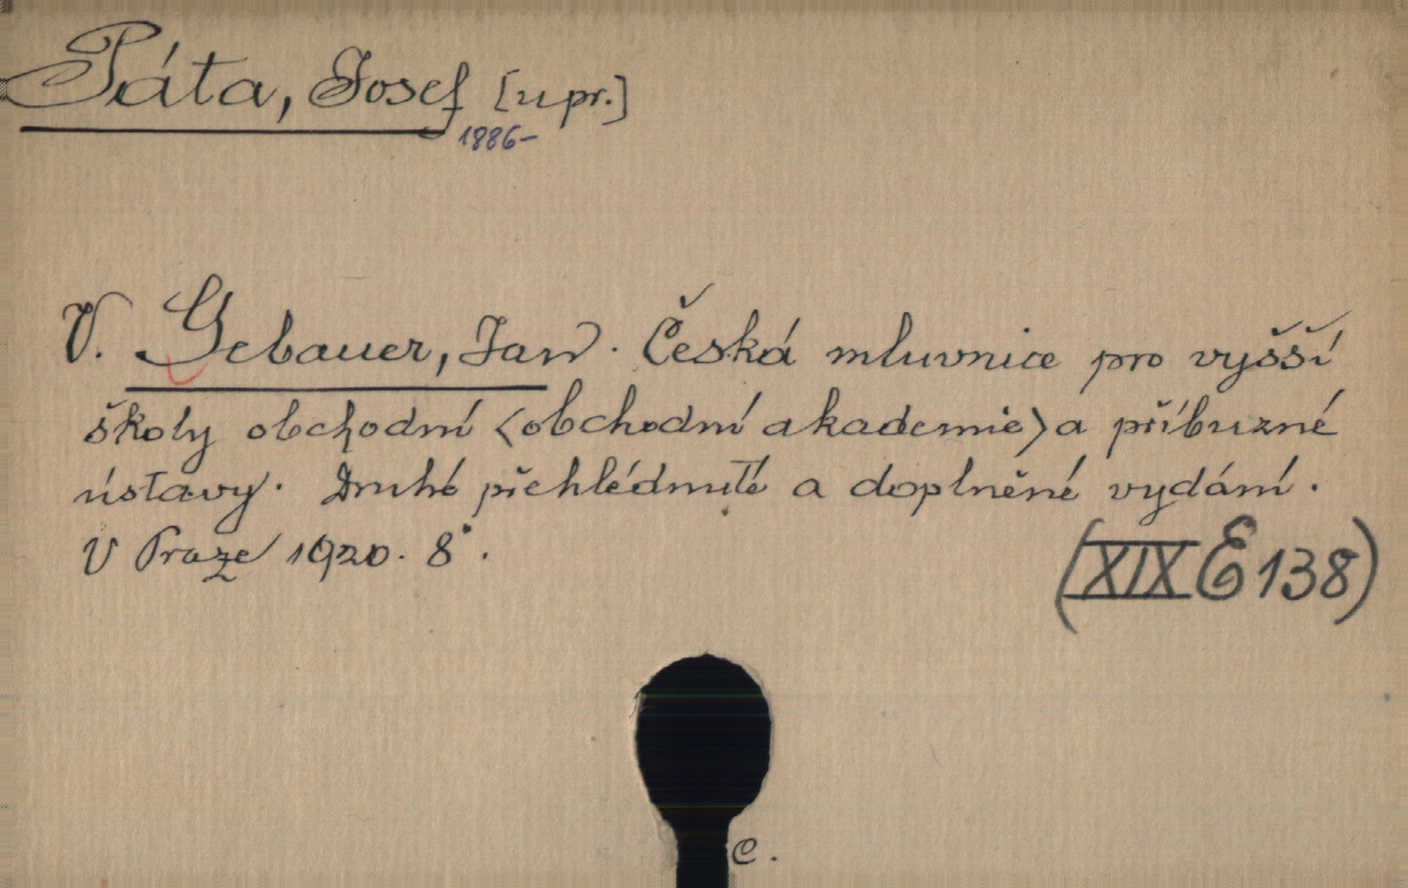 Páta, Josef [upr.]
1886-
V. Gebauer, Jan. Česká mluvnice pro vyšší
školy obchodní <obchodní akademie> a příbuzné
ústavy. Druhé přehlédnuté a doplněné vydání.
V Praze 1920. 8°.
(XIX E 138)
C.